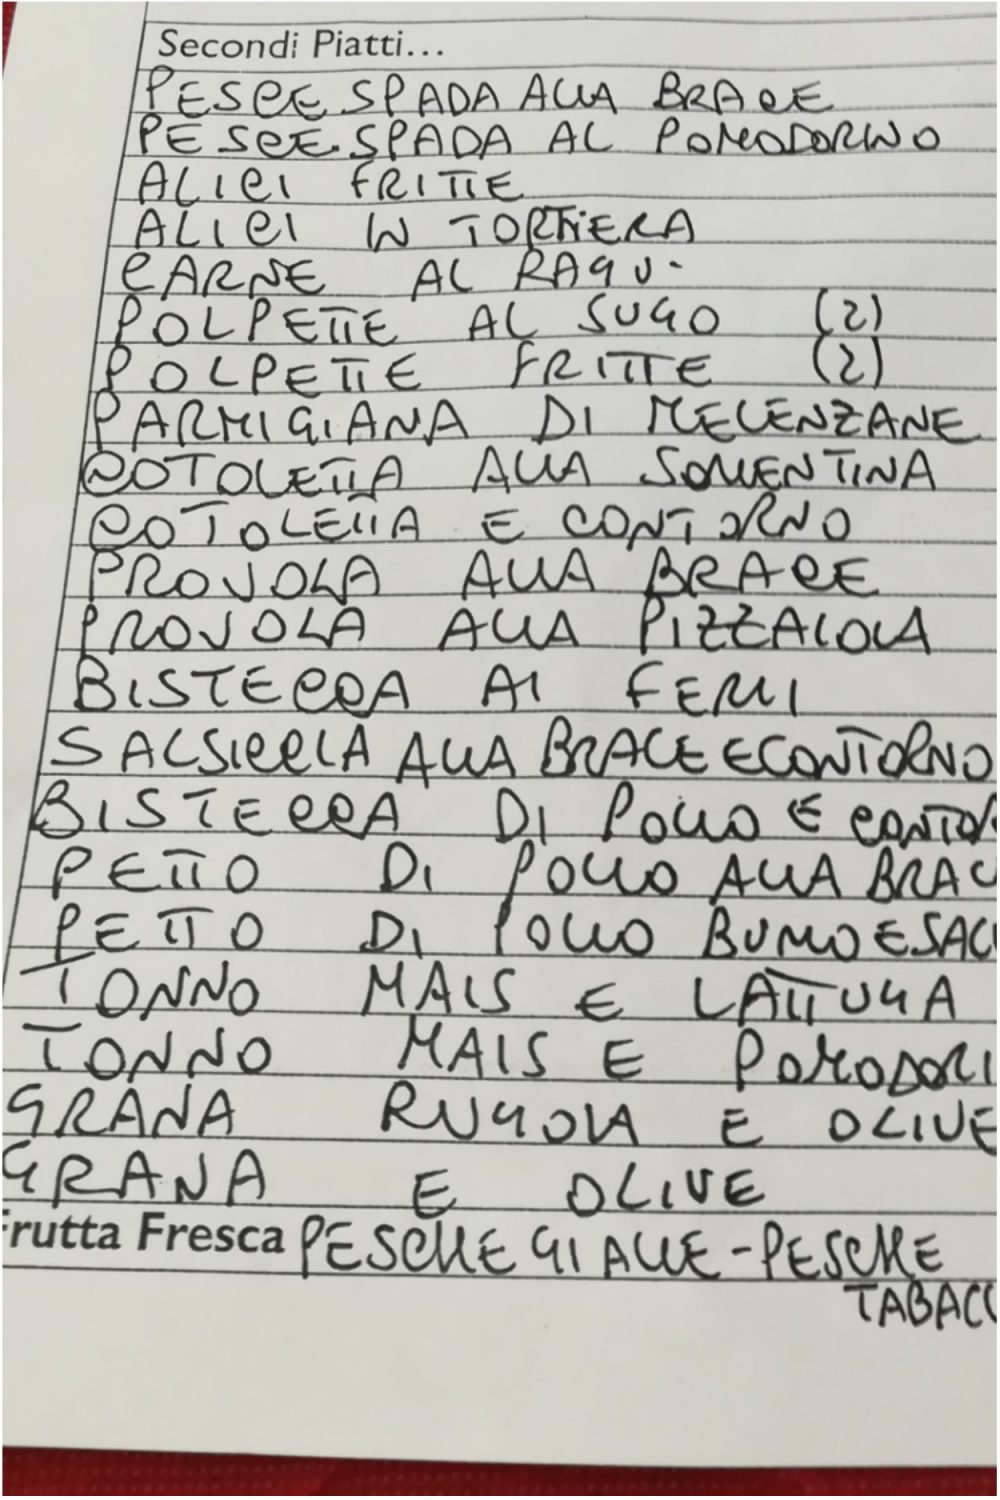 Secondi Piatti...
PESCE SPADA ALLA BRACE
PESCE SPADA AL POMODORINO
ALICI FRITTE
ALICI IN TORTIERA
CARNE AL RAGU'
POLPETTE AL SUGO (2)
POLPETTE FRITTE (2)
PARMIGIANA DI MELENZANE
COTOLETTA ALLA SORRENTINA
COTOLETTA E CONTORNO
PROVOLA ALLA BRACE
PROVOLA ALLA PIZZAIOLA
BISTECCA AI FERRI
SALSICCIA ALLA BRACE E CONTORNO
BISTECCA DI POLLO E CONTOR
PETTO DI POLLO ALLA BRAC
PETTO DI POLLO BURRO E SAL
TONNO MAIS E LATTUGA
TONNO MAIS E POMODORI
GRANA RUGOLA E OLIVE
GRANA E OLIVE
Frutta Fresca PESCHE GIALLE - PESCHE
TABACC